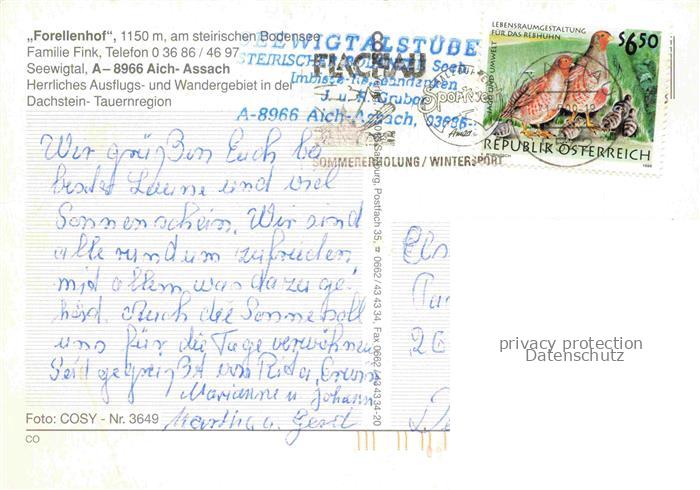 „Forellenhof“, 1150 m, am steirischen Bodensee
Familie Fink, Telefon 0 36 86 / 46 97
Seewigtal, A–8966 Aich-Assach
Herrliches Ausflugs- und Wandergebiet in der
Dachstein- Tauernregion
SEEWIGTALSTÜBE
STEIRISCHER
J. u. H. Gruber
A-8966 Aich-Assach, 03686-
FLACHAU
SOMMERERHOLUNG / WINTERSPORT
LEBENSRAUMGESTALTUNG
FÜR DAS REBHUHN
S 6,50
JAGD UND UMWELT
REPUBLIK ÖSTERREICH
Wir grüßen Euch bei
bester Laune und viel
Sonnenschein. Wir sind
alle rundum zufrieden
mit allem was dazu ge-
hört. Auch die Sonne soll
uns für die Tage verwöhnen
Seid gegrüßt von Rita, Erwin
Marianne u Johann
Martha u. Gerd
Salzburg, Postfach 35, 0662/43 43 34, Fax 0662/43 43 34-20
privacy protection
Datenschutz
Foto: COSY - Nr. 3649
CO